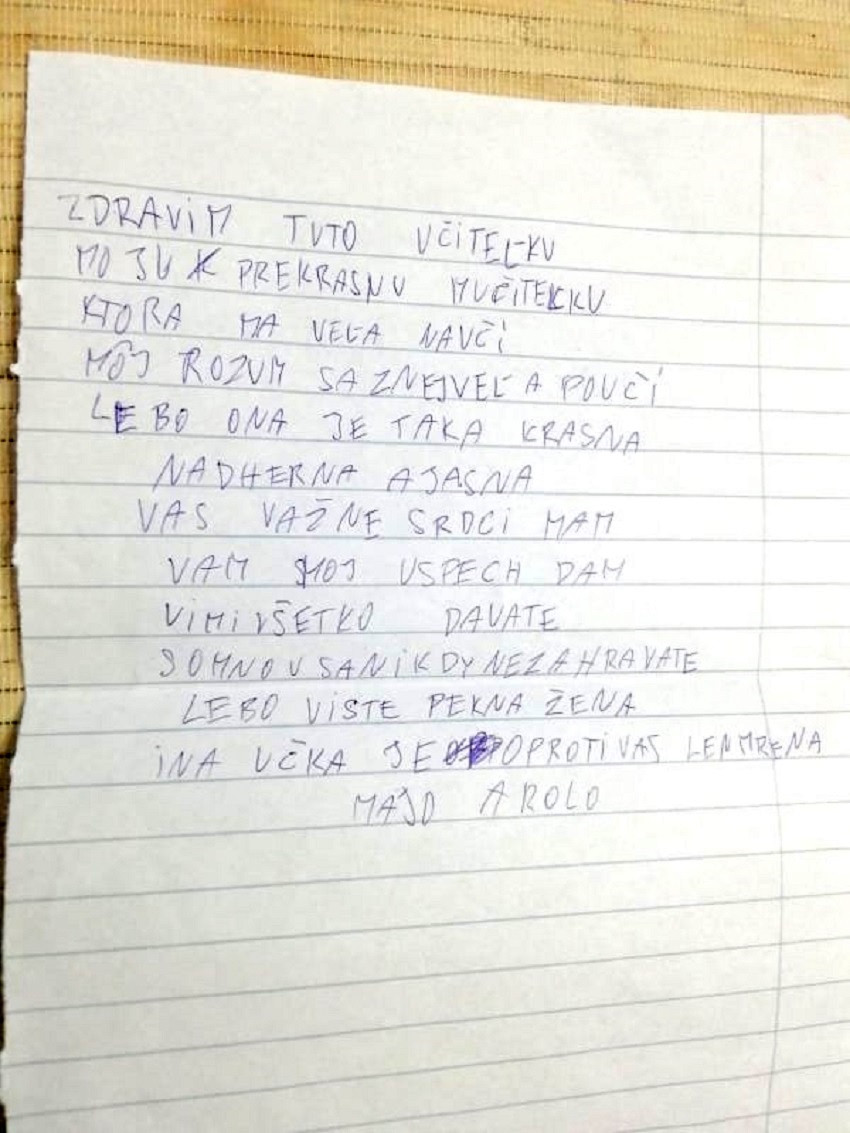 ZDRAVIM TUTO UČITEĽKU
MOJU PREKRASNU MUČITEĽKU
KTORA MA VEĽA NAUČÍ
MÔJ ROZUM SA ZNEJ VEĽA POUČÍ
LEBO ONA JE TAKA KRASNA
NADHERNA A JASNA
VAS VAŽNE SRDCI MAM
VAM MOJ USPECH DAM
VI MI VŠETKO DAVATE
SOMNOU SA NIKDY NEZAHRAVATE
LEBO VI STE PEKNA ŽENA
INA UČKA JE OPROTI VAS LEN MRENA
MAJO A ROLO